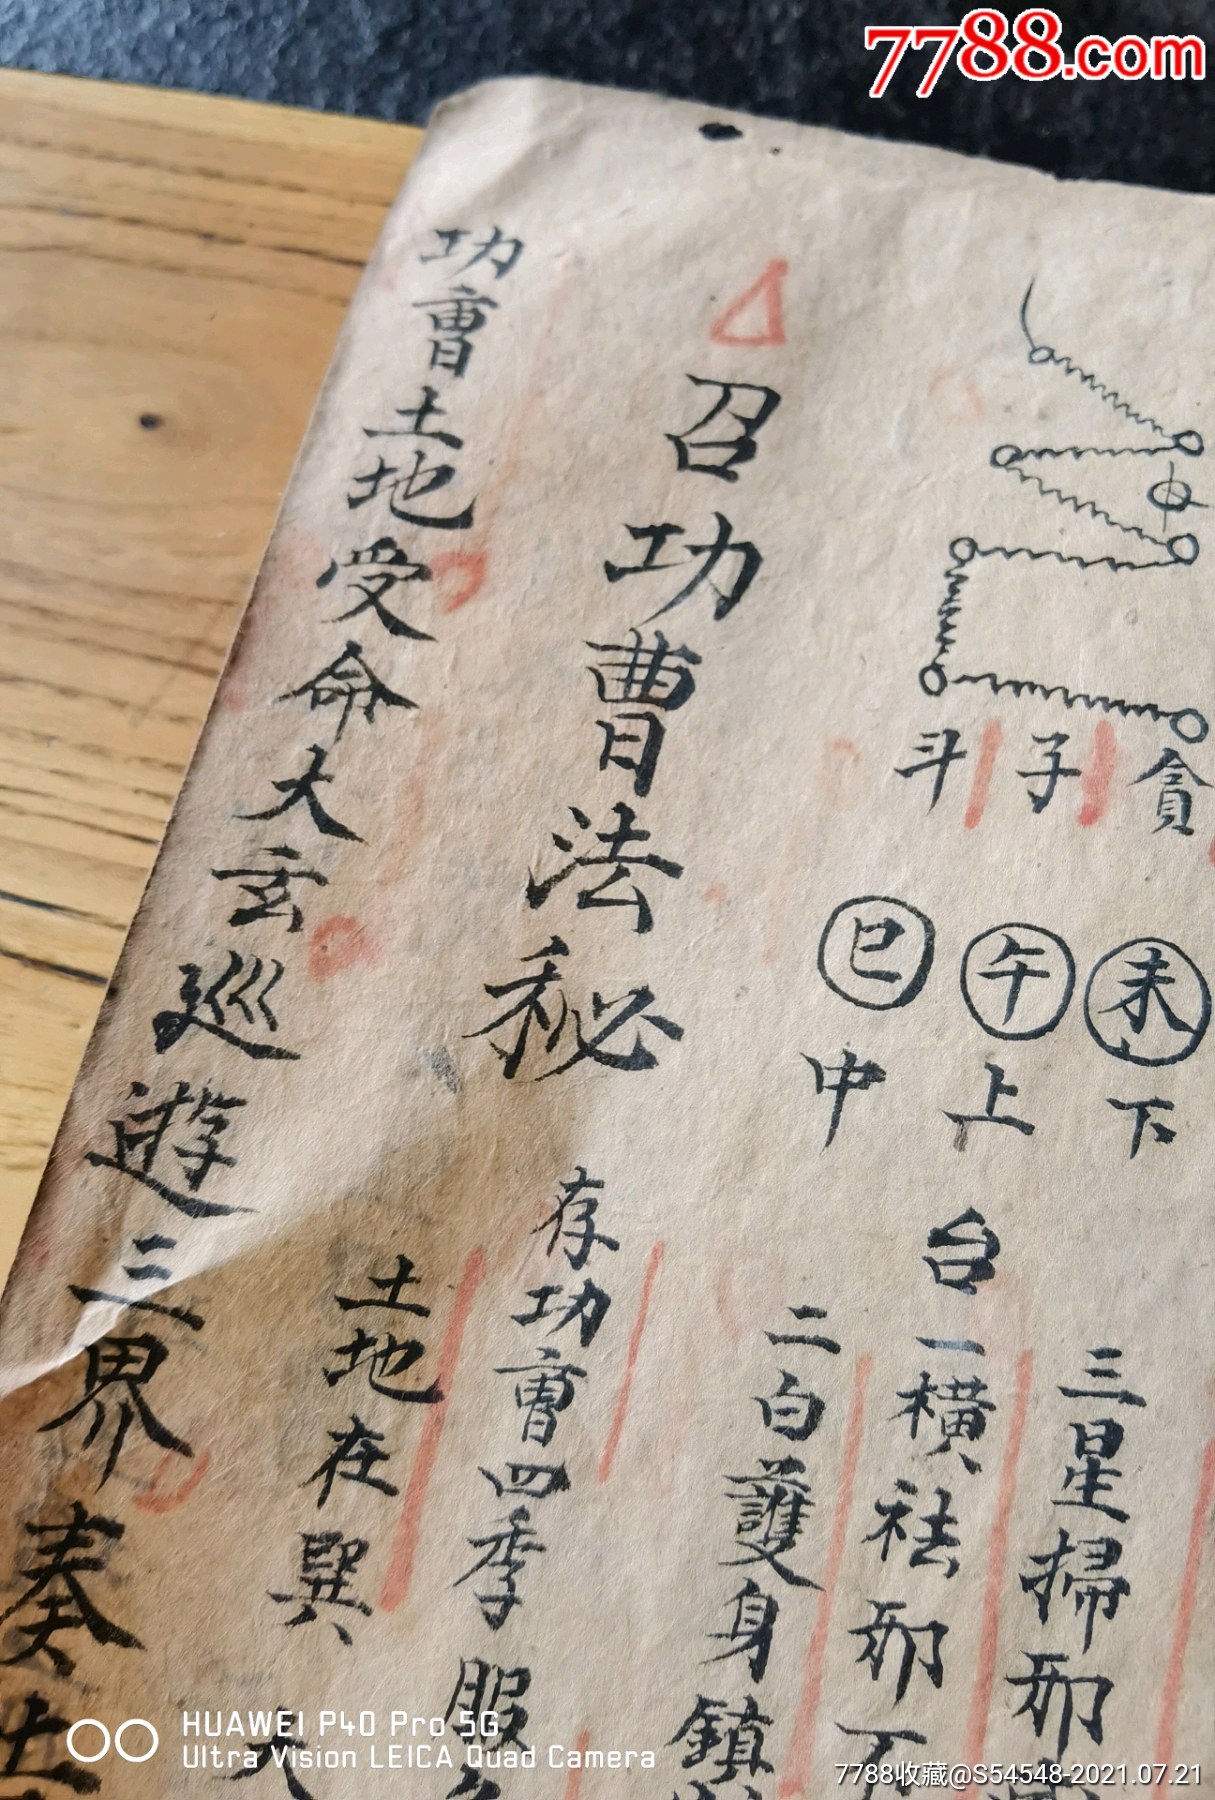 7788.com
斗 子 貪
巳 午 未
中 上 下
台
三星掃邪
一橫祛邪下
二白護身鎮
召功曹法秘
存功曹四季服
土地在巽
功曹土地受命大玄巡遊三界奏
HUAWEI P40 Pro 5G
Ultra Vision LEICA Quad Camera
7788收藏@S54548-2021.07.21